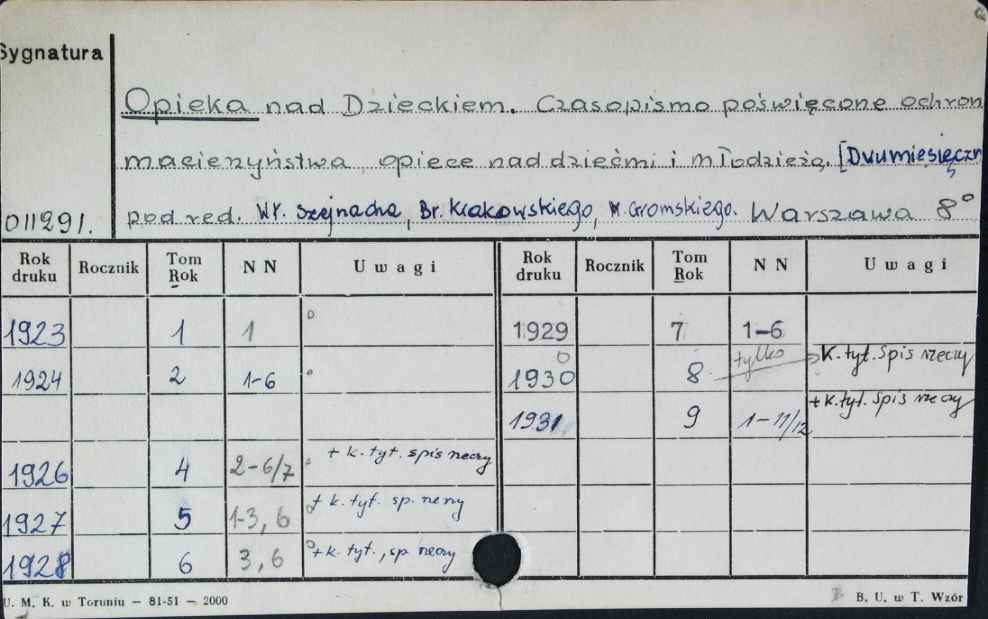 Sygnatura
Opieka nad Dzieckiem. Czasopismo poświęcone ochron
macierzyństwa, opiece nad dziećmi i młodzieżą. [Dwumiesięczn
011291. pod red. Wł. Szejnacha, Br. Krakowskiego, M. Gromskiego. Warszawa 8°
Rok druku Rocznik Tom Rok N N Uwagi Rok druku Rocznik Tom Rok N N Uwagi
1923 1 1 1929 7 1-6
1924 2 1-6 1930 8 tylko K. tyt. Spis rzeczy
1931 9 1-11/12 + k. tyt. Spis rzeczy
1926 4 2-6/7 + k. tyt. spis rzeczy
1927 5 1-3, 6 + k. tyt. sp. rzeczy
1928 6 3, 6 + k. tyt., sp. rzeczy
U. M. K. w Toruniu — 81-51 — 2000 B. U. w T. Wzór